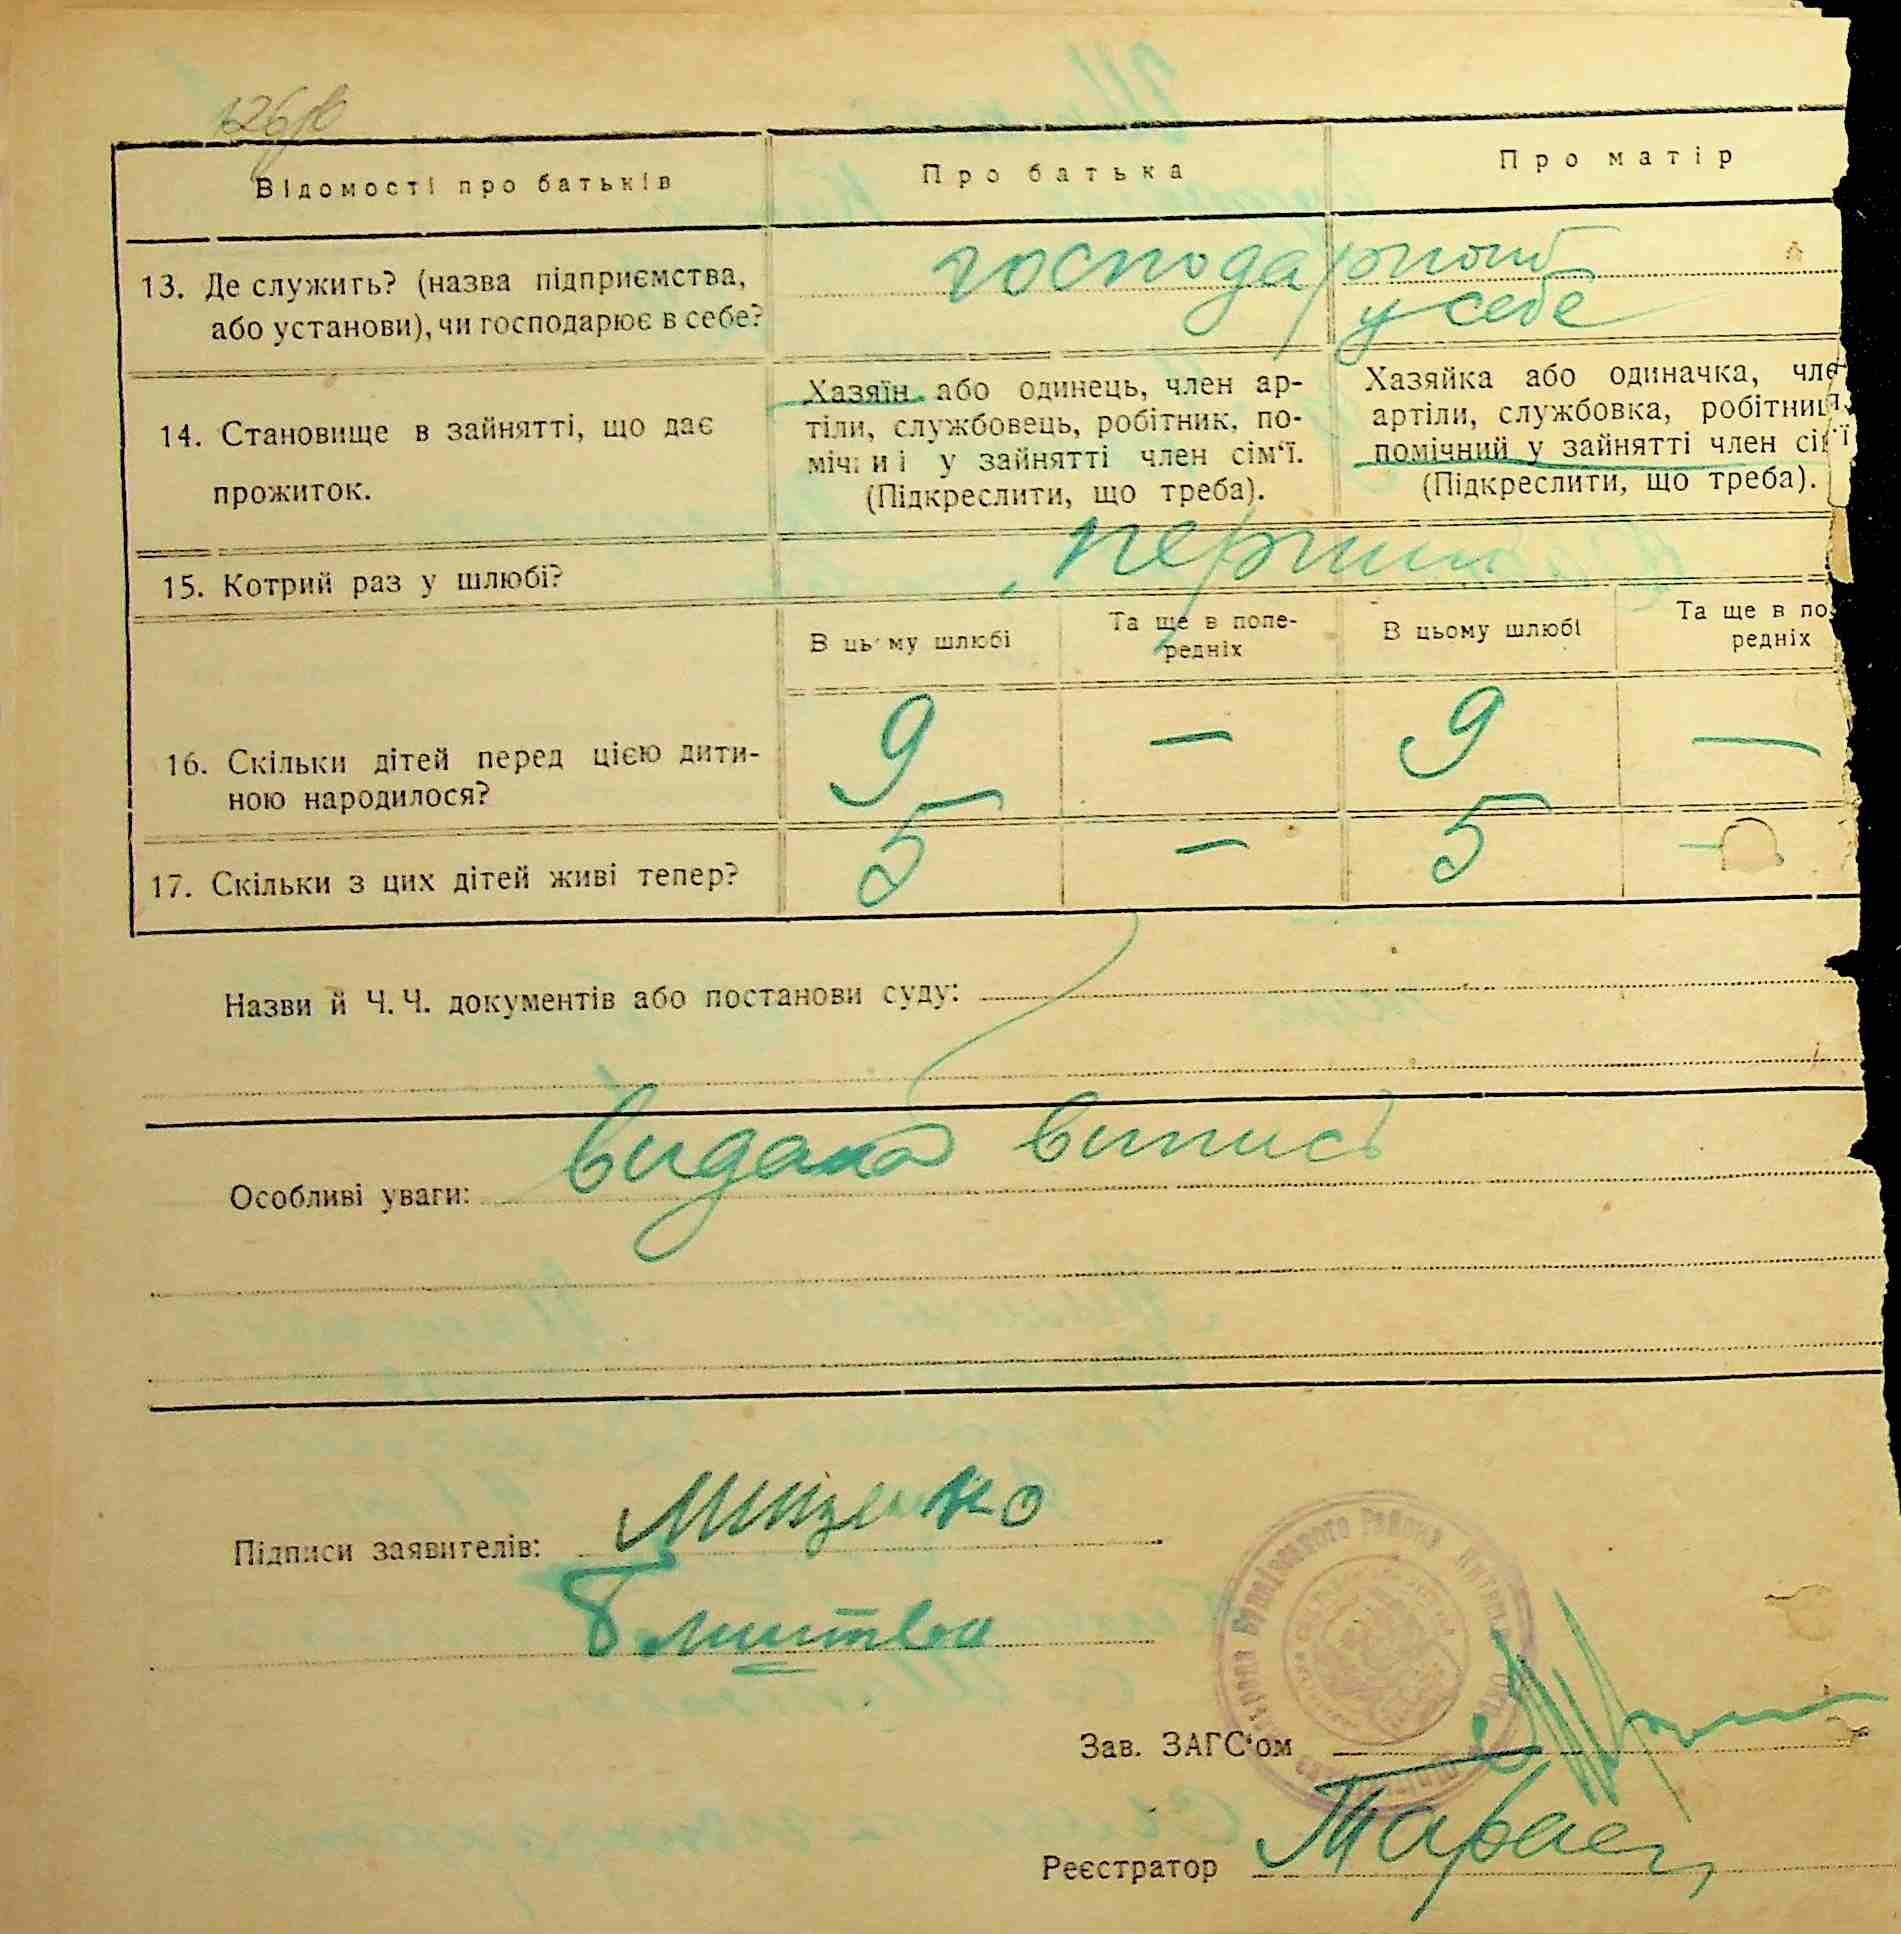 Відомості про батьків
Про батька
Про матір
13. Де служить? (назва підприємства,
або установи), чи господарює в себе?
господарюють
у себе
14. Становище в зайнятті, що дає
прожиток.
Хазяїн або одинець, член ар-
тіли, службовець, робітник, по-
мічниі у зайнятті член сім'ї.
(Підкреслити, що треба).
Хазяйка або одиначка, чле
артіли, службовка, робітниця,
помічний у зайнятті член сім'ї
(Підкреслити, що треба).
15. Котрий раз у шлюбі?
перший
В цьому шлюбі
Та ще в попе-
редніх
В цьому шлюбі
Та ще в по
редніх
16. Скільки дітей перед цією дити-
ною народилося?
9 — 9 —
17. Скільки з цих дітей живі тепер?
5 — 5 —
Назви й Ч. Ч. документів або постанови суду:
Особливі уваги: видана випись
Підписи заявителів:
Зав. ЗАГС'ом
Реєстратор